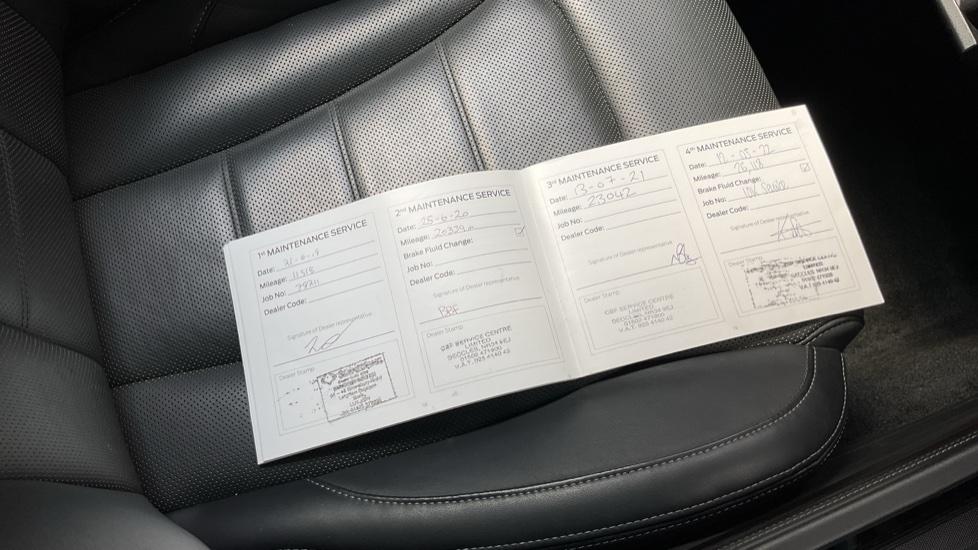 1ST MAINTENANCE SERVICE
Date: 21-6-19
Mileage: 11515
Job No:
Dealer Code:
Signature of Dealer representative
Dealer Stamp
2ND MAINTENANCE SERVICE
Date: 25-6-20
Mileage: 20329
Brake Fluid Change:
Job No:
Dealer Code:
Signature of Dealer representative
Dealer Stamp
SERVICE CENTRE
LIMITED
BECCLES, NR34 9EJ
01502 471800
V.A.T. 923 4140 42
3RD MAINTENANCE SERVICE
Date: 13-07-21
Mileage: 23042
Job No:
Dealer Code:
Signature of Dealer representative
Dealer Stamp
SERVICE CENTRE
LIMITED
BECCLES, NR34 9EJ
01502 471800
V.A.T. 923 4140 42
4TH MAINTENANCE SERVICE
Date: 12-05-22
Mileage: 26,118
Brake Fluid Change:
Job No:
Dealer Code:
Signature of Dealer representative
Dealer Stamp